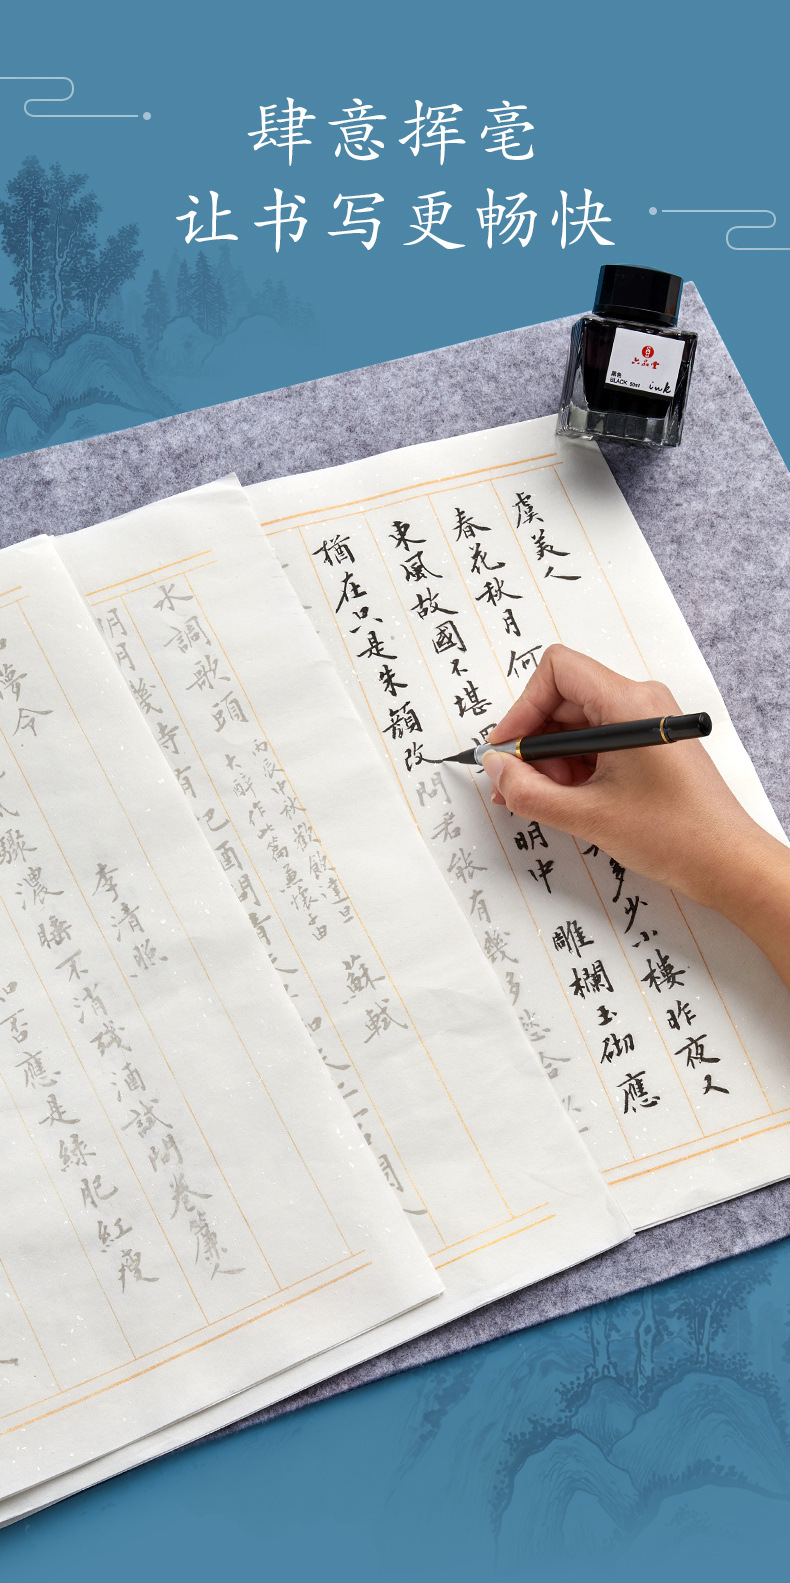 肆意挥毫
让书写更畅快
六品堂
黑色
BLACK 50ml
ink
虞美人
春花秋月何 多少小樓昨夜又
東風故國不堪 明中 雕欄玉砌應
猶在只是朱顏改問君能有幾多愁恰
水調歌頭
丙辰中秋歡飲達旦
大醉作此篇兼懷子由
蘇軾
明月幾時有把酒問青天
夢令
李清照
驟濃睡不消殘酒試問卷簾人
知否應是綠肥紅瘦